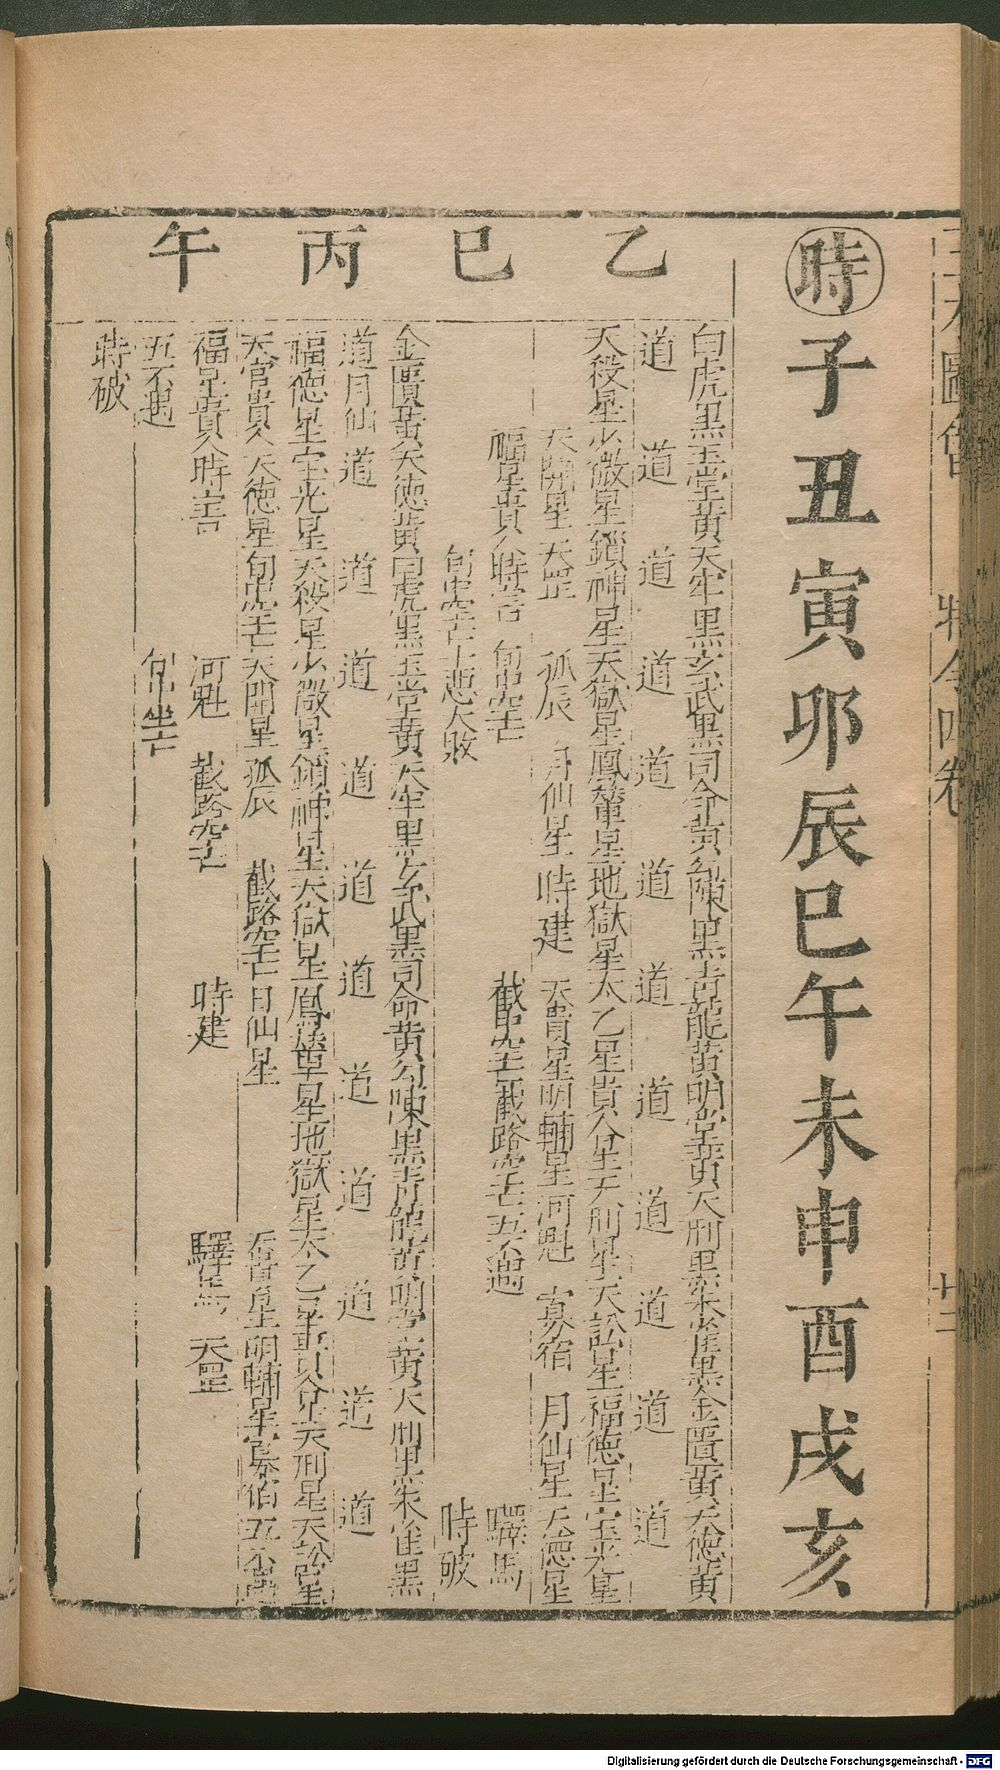 時子丑寅卯辰巳午未申酉戌亥
乙巳
白虎黑玉堂黃天牢黑玄武黑司命黃勾陳黑青龍黃明堂黃天刑黑朱雀黑金匱黃天德黃
道 道 道 道 道 道 道 道 道 道 道 道
天殺星少微星鎖神星天獄星鳳輦星地獄星太乙星貴人星天刑星天訟星福德星宝光星
天開星天罡 孤辰 月仙星時建 天貴星明輔星河魁 寡宿 月仙星天德星
福星貴人時害 旬中空亡 截路空亡五不遇 驛馬
旬中空亡十惡大敗 時破
丙午
金匱黃天德黃白虎黑玉堂黃天牢黑玄武黑司命黃勾陳黑青龍黃明堂黃天刑黑朱雀黑
道月仙 道 道 道 道 道 道 道 道 道 道 道
福德星宝光星天殺星少微星鎖神星天獄星鳳輦星地獄星太乙星貴人星天刑星天訟星
天官貴人天德星旬中空亡天開星孤辰 截路空亡日仙星 天貴星明輔星寡宿 五不遇
福星貴人時害 河魁 截路空亡 時建 驛馬 天罡
五不遇
時破
三才圖會 時令四卷 廿二
Digitalisierung gefördert durch die Deutsche Forschungsgemeinschaft - DFG